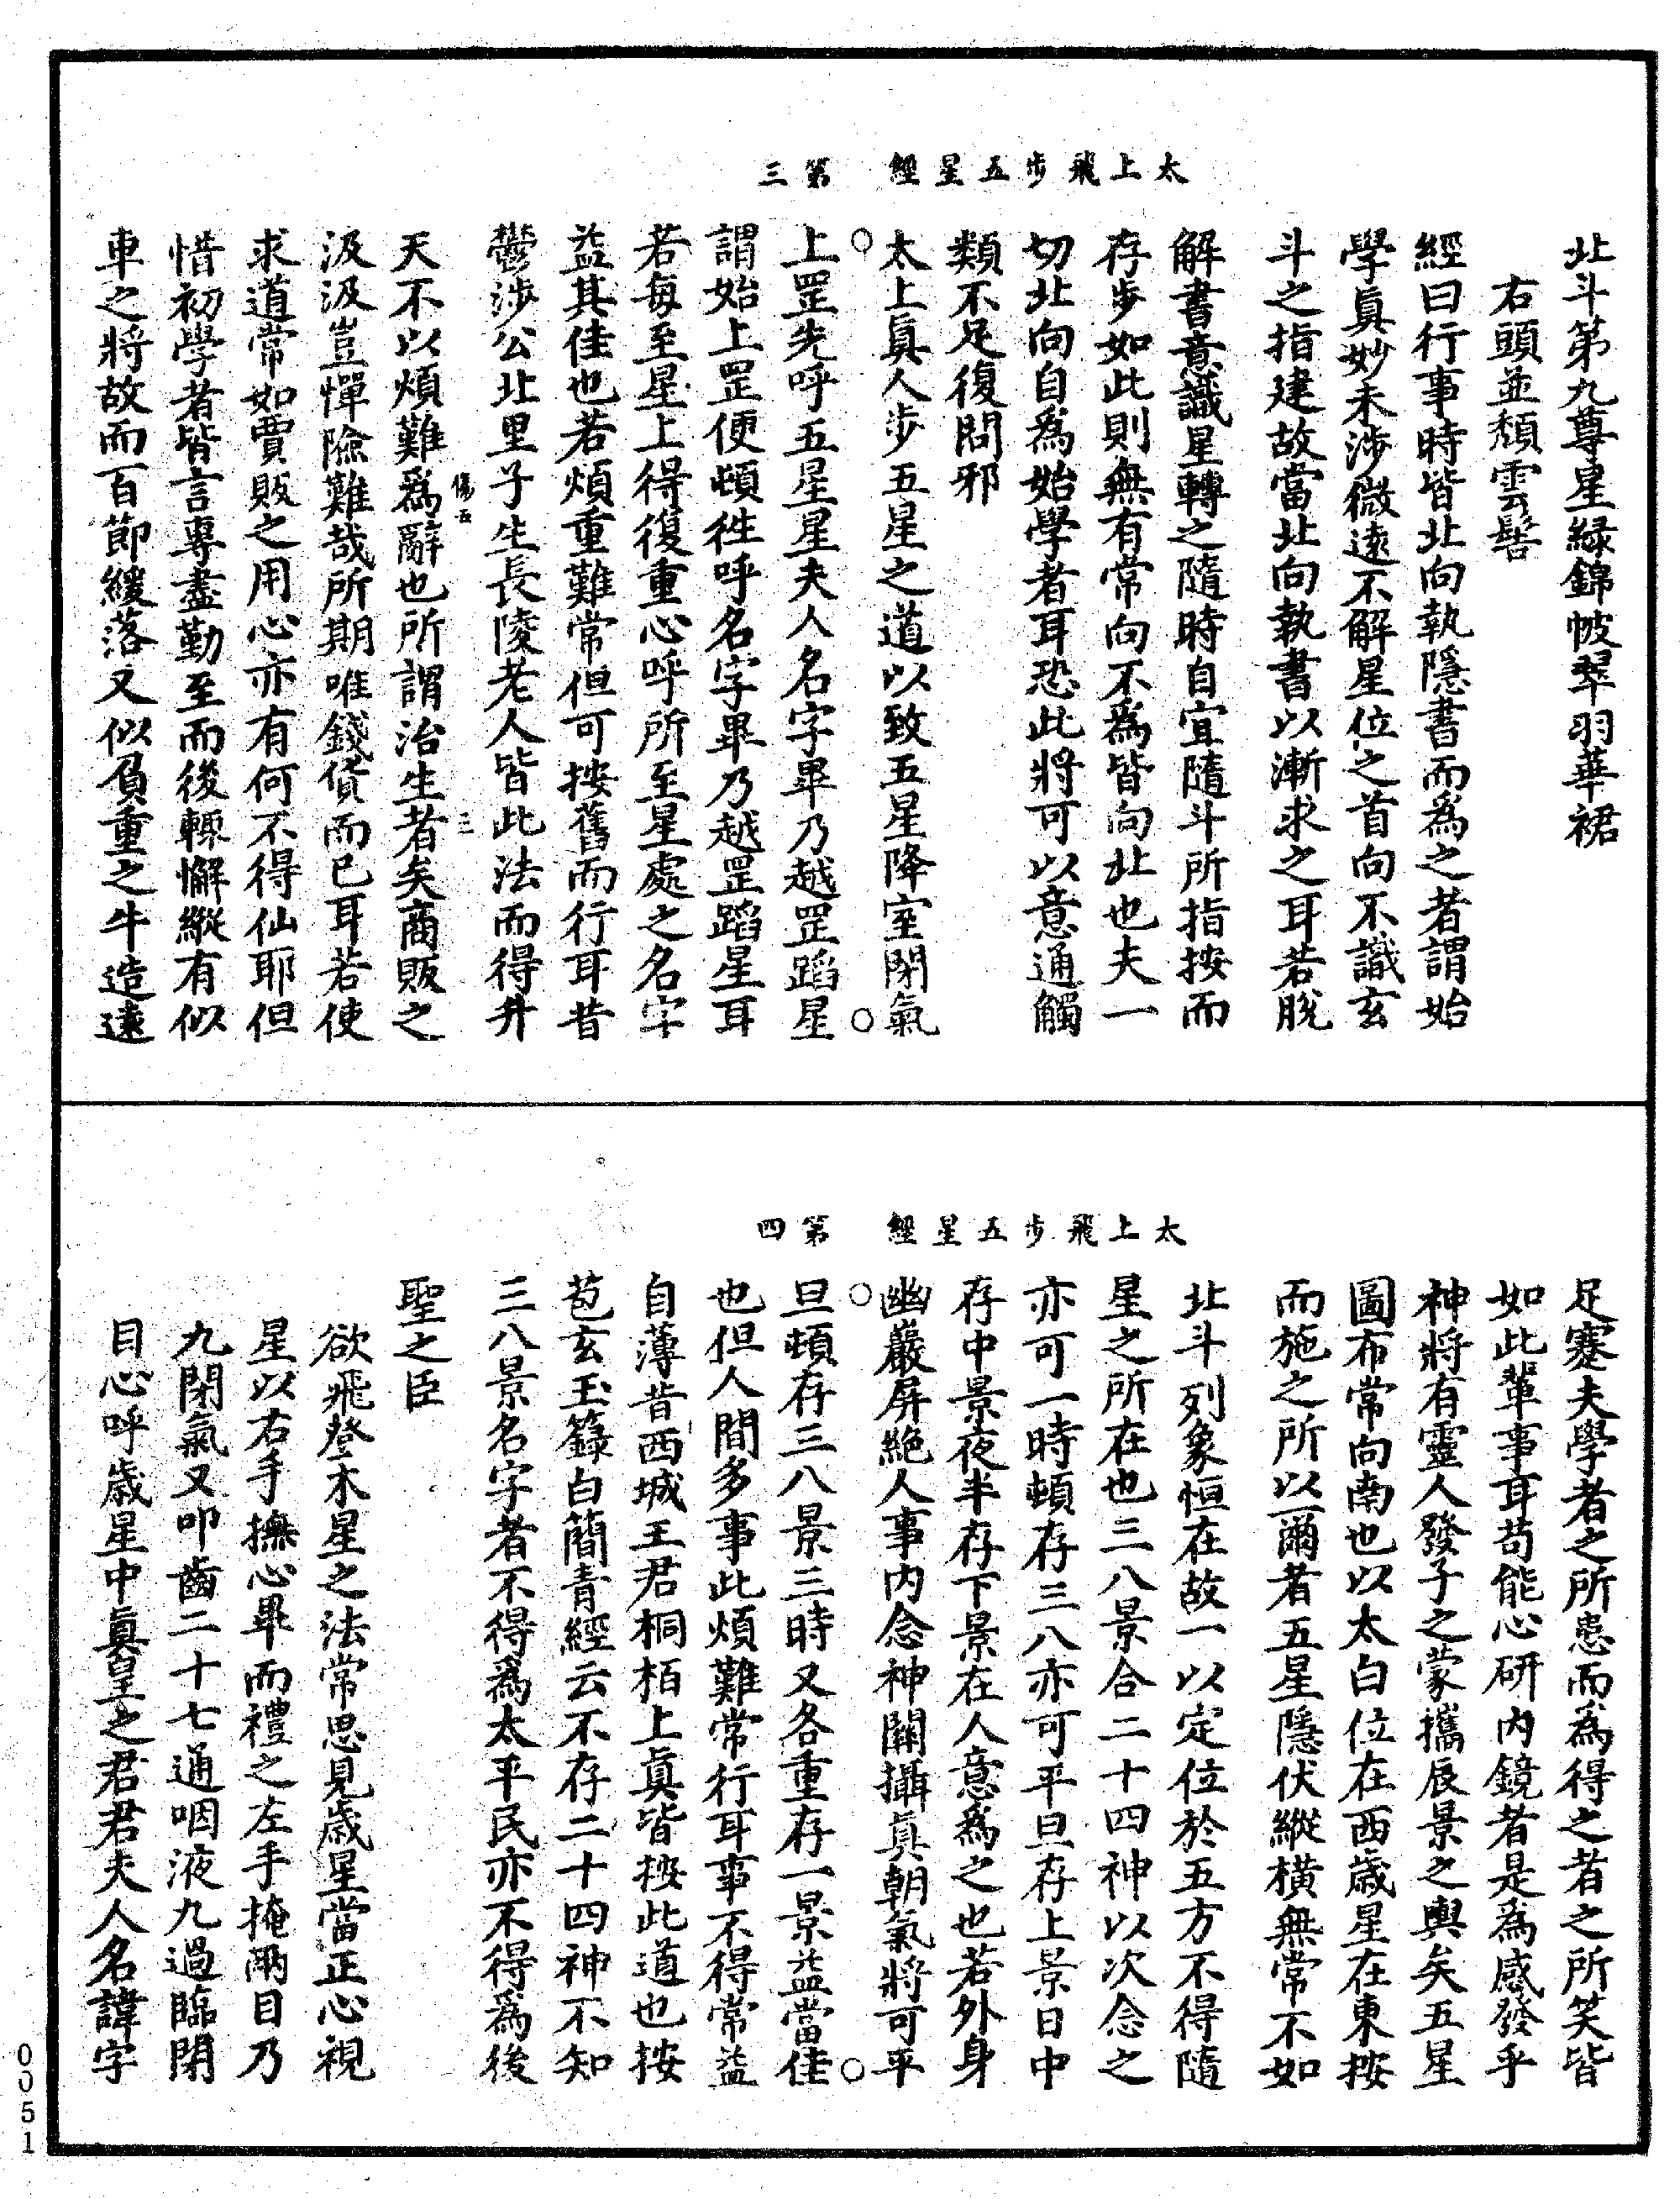 太上飛步五星經　第三
北斗第九尊星緑錦帔翠羽華裙
右頭並頹雲髻
經曰行事時皆北向執隱書而爲之者謂始
學眞妙未涉微遠不解星位之首向不識玄
斗之指建故當北向執書以漸求之耳若脫
解書意識星轉之隨時自宜隨斗所指按而
存步如此則無有常向不爲皆向北也夫一
切北向自爲始學者耳恐此將可以意通觸
類不足復問邪
太上眞人步五星之道以致五星降室閉氣
上罡先呼五星星夫人名字畢乃越罡蹈星
謂始上罡便頓徃呼名字畢乃越罡蹈星耳
若每至星上得復重心呼所至星處之名字
益其佳也若煩重難常但可按舊而行耳昔
鬱涉公北里子生長陵老人皆此法而得升
傷五　三
天不以煩難爲辭也所謂治生者矣商販之
汲汲豈憚險難哉所期唯錢貨而已耳若使
求道常如賈販之用心亦有何不得仙耶但
惜初學者皆言專盡勤至而後輙懈縱有似
車之將故而百節緩落又似負重之牛造遠
太上飛步五星經　第四
足蹇夫學者之所患而爲得之者之所笑皆
如此輩事耳苟能心研内鏡者是爲感發乎
神將有靈人發子之蒙攜辰景之輿矣五星
圖布常向南也以太白位在西歲星在東按
而施之所以爾者五星隱伏縱橫無常不如
北斗列象恒在故一以定位於五方不得隨
星之所在也三八景合二十四神以次念之
亦可一時頓存三八亦可平旦存上景日中
存中景夜半存下景在人意爲之也若外身
幽巖屏絶人事内念神關攝眞朝氣將可平
旦頓存三八景三時又各重存一景益當佳
也但人間多事此煩難常行耳事不得常益
自薄昔西城王君桐栢上眞皆按此道也按
苞玄玉籙白簡青經云不存二十四神不知
三八景名字者不得爲太平民亦不得爲後
聖之臣
欲飛登木星之法常思見歲星當正心視
星以右手撫心畢而禮之左手掩兩目乃
九閉氣又叩齒二十七通咽液九過臨閉
目心呼歲星中眞皇之君君夫人名諱字
0051